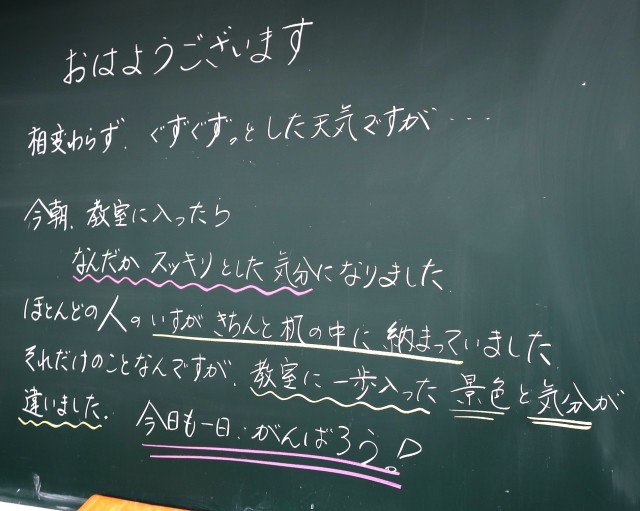 おはようございます
相変わらず、ぐずぐずっとした天気ですが・・・
今朝、教室に入ったら
なんだか スッキリとした気分になりました。
ほとんどの人のいすがきちんと机の中に納まっていました
それだけのことなんですが、教室に一歩入った景色と気分が
違いました。
今日も一日、がんばろう。